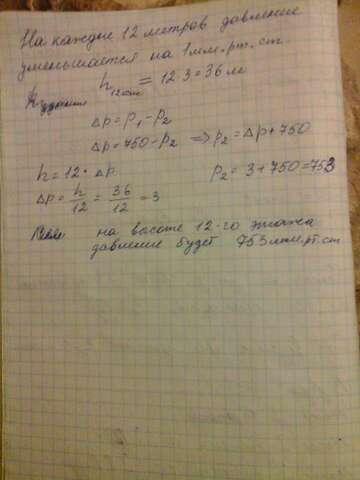 На каждые 12 метров давление
уменьшается на 1 мм.рт.ст.
h = 12·3 = 36 м
Δp = p₁ - p₂
Δp = 750 - p₂ ⇒ p₂ = Δp + 750
h = 12 · Δp
p₂ = 3 + 750 = 753
Δp = h/12 = 36/12 = 3
на высоте 12-го этажа
давление будет 753 мм.рт.ст